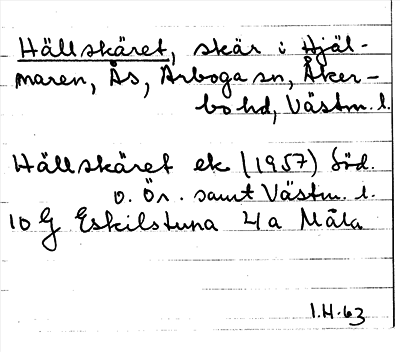 Hällskäret, skär i Hjäl-
maren, Ås, Arboga sn, Åker-
bo hd, Västm. l.
Hällskäret ek (1957) Söd.
o. Ör. samt Västm. l.
10 G Eskilstuna 4 a Mäla
I.H. 63